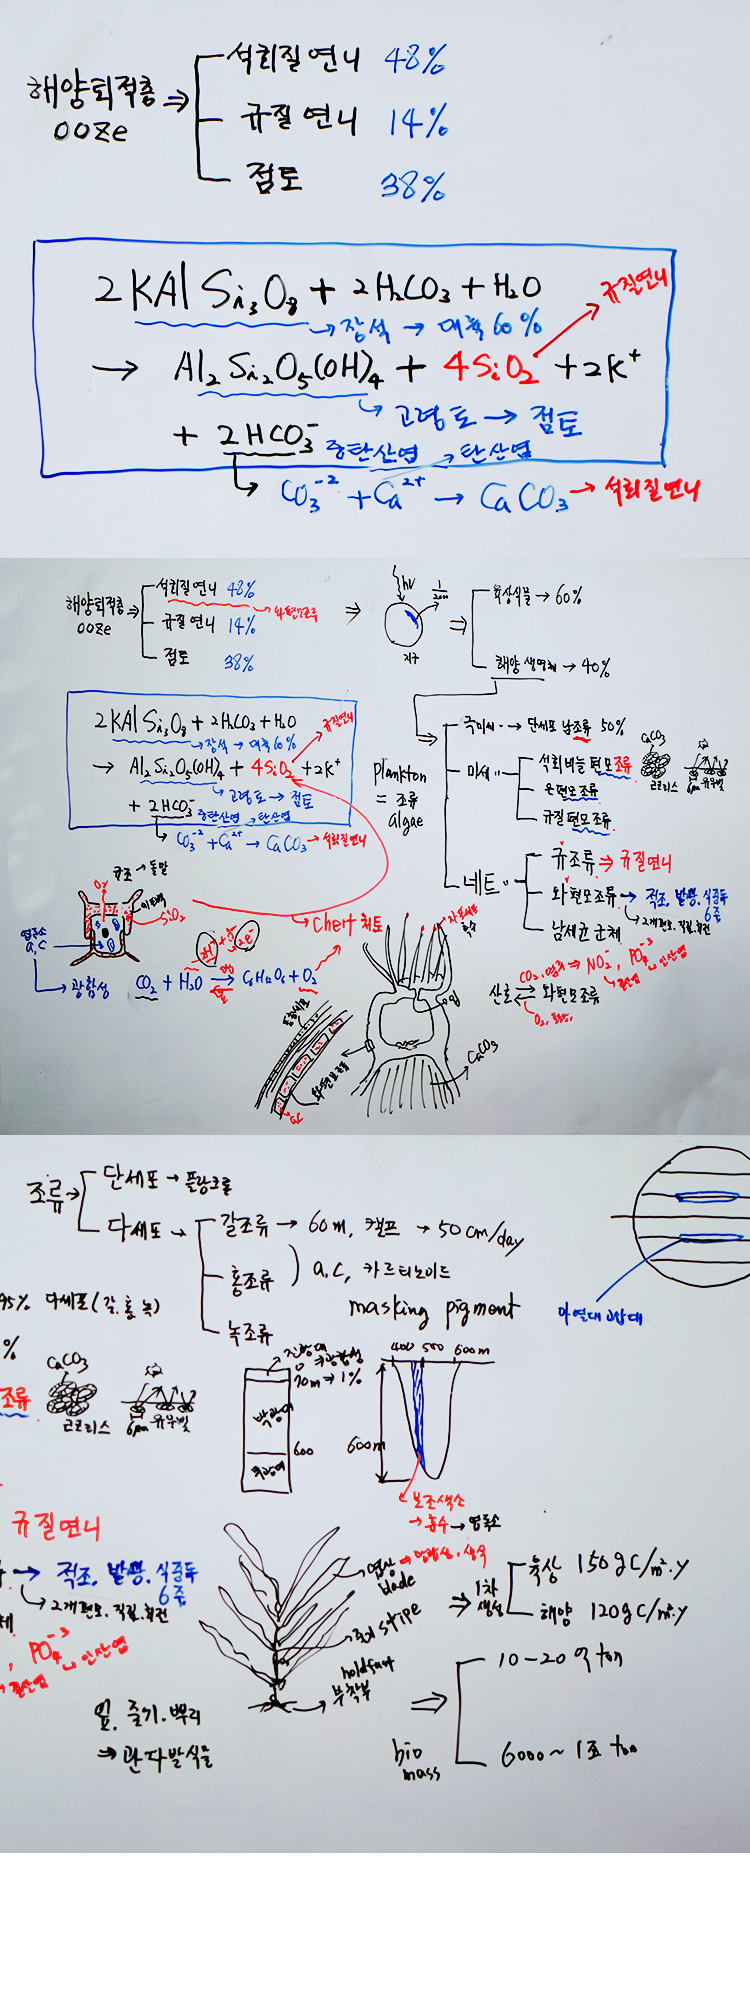 해양퇴적층 ⇒
ooze
석회질연니 48%
규질연니 14%
점토 38%
2KAlSi₃O₈ + 2H₂CO₃ + H₂O
규질연니
→ 장석 → 대륙 60%
→ Al₂Si₂O₅(OH)₄ + 4SiO₂ + 2K⁺
→ 고령토 → 점토
+ 2HCO₃⁻ 중탄산염 → 탄산염
CO₃⁻² + Ca²⁺ → CaCO₃ → 석회질연니
해양퇴적층 ⇒
ooze
석회질연니 48%
→ 와편모조류
규질연니 14%
점토 38%
hν
지구
육상식물 → 60%
해양생명체 → 40%
2KAlSi₃O₈ + 2H₂CO₃ + H₂O
규질연니
→ 장석 → 대륙 60%
→ Al₂Si₂O₅(OH)₄ + 4SiO₂ + 2K⁺
→ 고령토 → 점토
+ 2HCO₃⁻ 중탄산염 → 탄산염
CO₃⁻² + Ca²⁺ → CaCO₃ → 석회질연니
plankton
= 조류
algae
극미세 → 단세포 남조류 50%
미세
석회비늘 편모조류
은편모조류
규질편모조류
CaCO₃
코코리스
6μm 유우빛
네트
규조류 → 규질연니
와편모조류 → 적조, 발광, 식중독
6종
2개편모, 직진, 회전
남세균 군체
규조 → 돌말
O₂
SiO₂
엽록소
a, c
→ 광합성
CO₂ + H₂O → C₆H₁₂O₆ + O₂
2H⁺
2e⁻
→ Chert 처트
촉수
입
와편모조류
a.c
CaCO₃
산호 ⇄ 와편모조류
CO₂, 염화 → NO₂⁻, PO₄⁻³
질산염
인산염
조류 →
단세포 → 플랑크톤
다세포 →
갈조류 → 60m, 켈프 → 50cm/day
홍조류
a, c, 카르티노이드
masking pigment
녹조류
아열대 고압대
95% 다세포(갈, 홍, 녹)
%
CaCO₃
조류
코코리스
6μm 유우빛
진광대
→ 광합성
70m → 1%
박광대
600
무광대
400 500 600m
600m
보조색소
→ 흡수 → 엽록소
규질연니
→ 적조, 발광, 식중독
6종
→ 2개편모, 직진, 회전
체
PO₄⁻³
인산염
질산염
엽상 → 광합성, 생식
blade
줄기 stipe
holdfast
부착부
잎, 줄기, 뿌리
→ 관다발식물
⇒ 1차
생산
육상 150gC/m²·y
해양 120gC/m²·y
bio
mass
10-20억 ton
6000~1조 ton